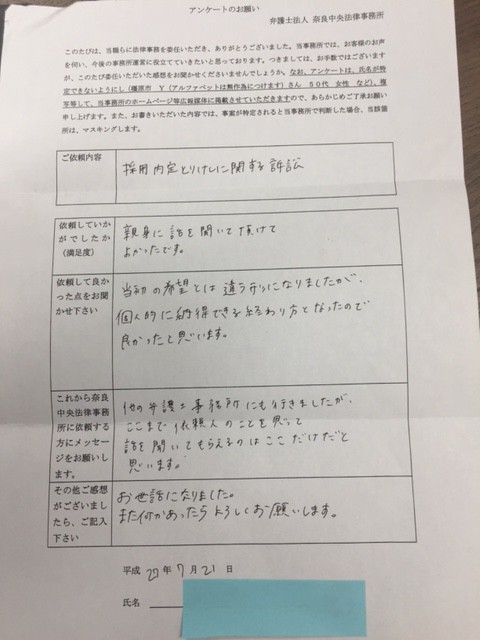 アンケートのお願い
弁護士法人 奈良中央法律事務所
このたびは、当職らに法律事務を委任いただき、ありがとうございました。当事務所では、お客様のお声
を伺い、今後の事務所運営に役立てていきたいと思っております。つきましては、お手数ではございます
が、このたび委任いただいた感想をお聞かせくださいませんでしょうか。なお、アンケートは、氏名が特
定できないようにし(橿原市 Y(アルファベットは無作為につけます)さん 50代 女性 など)、複
写等して、当事務所のホームページ等広報媒体に掲載させていただきますので、あらかじめご了承お願い
申し上げます。また、お書きいただいた内容では、事案が特定されると当事務所で判断した場合、当該箇
所は、マスキングします。
ご依頼内容
採用内定とりけしに関する訴訟
依頼していか
がでしたか
(満足度)
親身に話を聞いて頂けて
よかったです。
依頼して良か
った点をお聞
かせ下さい
当初の希望とは違う形になりましたが、
個人的に納得できる終わり方となったので
良かったと思います。
これから奈良
中央法律事務
所に依頼する
方にメッセー
ジをお願いし
ます。
他の弁護士事務所にも行きましたが、
ここまで依頼人のことを思って
話を聞いてもらえるのはここだけだと
思います。
その他ご感想
がございまし
たら、ご記入
下さい
お世話になりました。
また何かあったらよろしくお願いします。
平成 27年 7月 21日
氏名